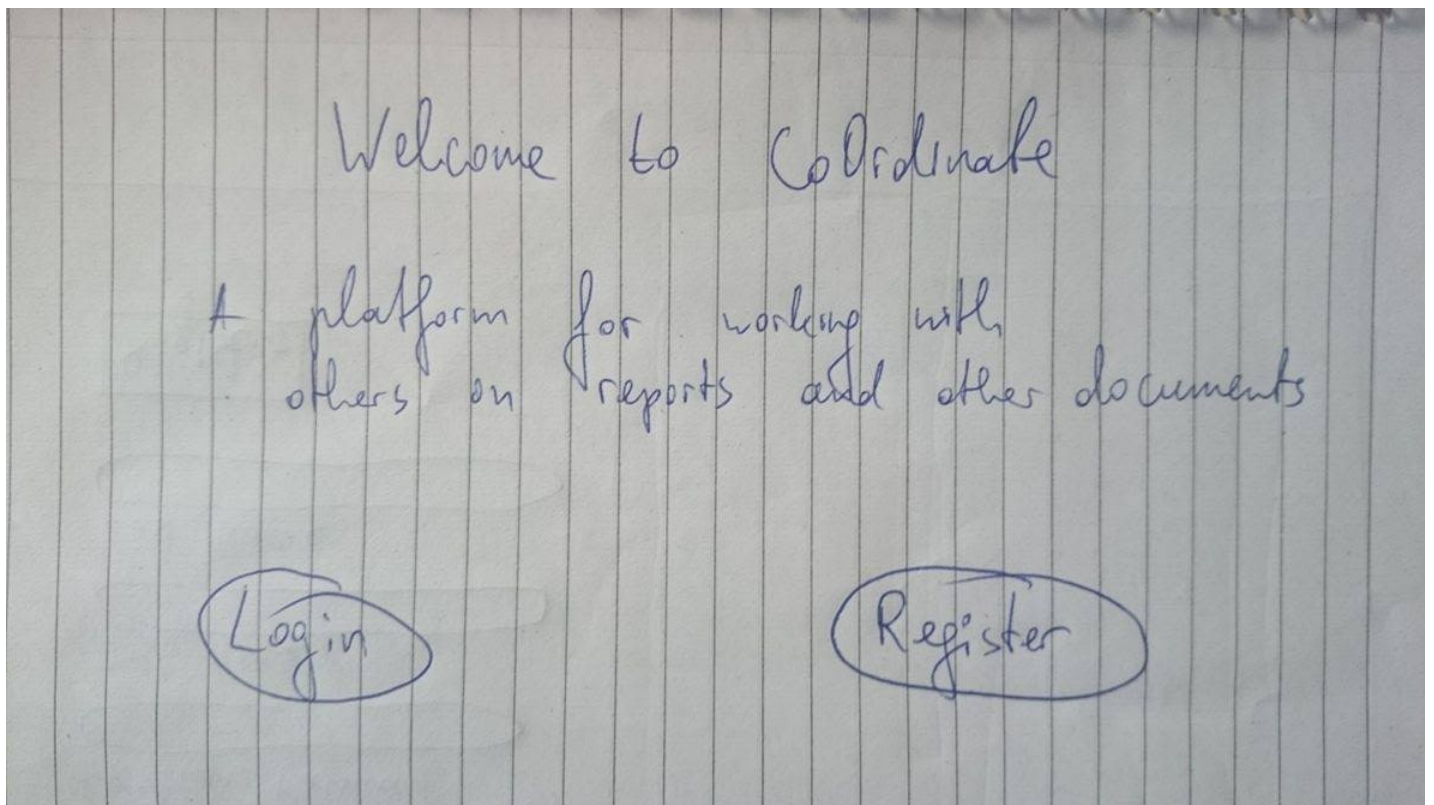 Welcome to CoOrdinate
A platform for working with
others on reports and other documents
Login Register